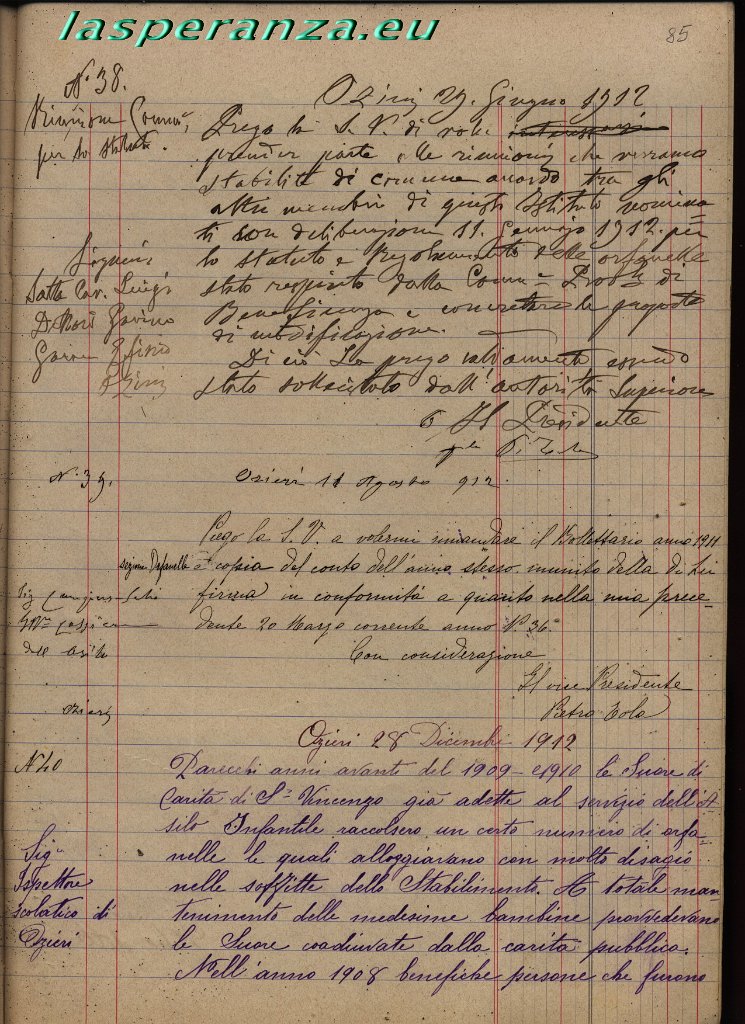 lasperanza.eu
85
N° 38.
Riunione
per lo Statuto.
Ozieri 29. Giugno 1912
Prego la S. V. di voler
prender parte alle riunioni che verranno
stabilite di comune accordo tra gli
altri membri di questo Istituto nomina=
ti con deliberazione 11. Gennajo 1912. per
lo statuto e Regolamento delle orfanelle
stato respinto dalla Comm.ne Prov.le di
Beneficenza e concretare le proposte
di modificazione.
Di ciò La prego caldamente essendo
stato sollecitato dall'autorità Superiore
Signori
Satta Cav. Luigi
Gavino
Efisio
Ozieri
Il Presidente
N. 39.
Ozieri 11 Agosto 912.
Prego la S. V. a volermi rimandare il Bollettario anno 1911
sezione Orfanelle e copia del conto dell'anno stesso munito della di Lei
firma in conformità a quanto nella mia prece-
dente 20 Marzo corrente anno N. 36.
Con considerazione
Sig
Ozieri
Il vice Presidente
Pietro Tola
Ozieri 28 Dicembre 1912
N 40
Parecchi anni avanti del 1909-1910 le Suore di
Carità di S. Vincenzo già adette al servizio dell'A-
silo Infantile raccolsero un certo numero di orfa-
nelle le quali alloggiarano con molto disagio
nelle soffitte dello Stabilimento. A totale man-
tenimento delle medesime bambine provvedevano
le Suore coadiuvate dalla carità pubblica.
Nell'anno 1908 benefiche persone che furono
Sig.
Ispettore
scolastico di
Ozieri